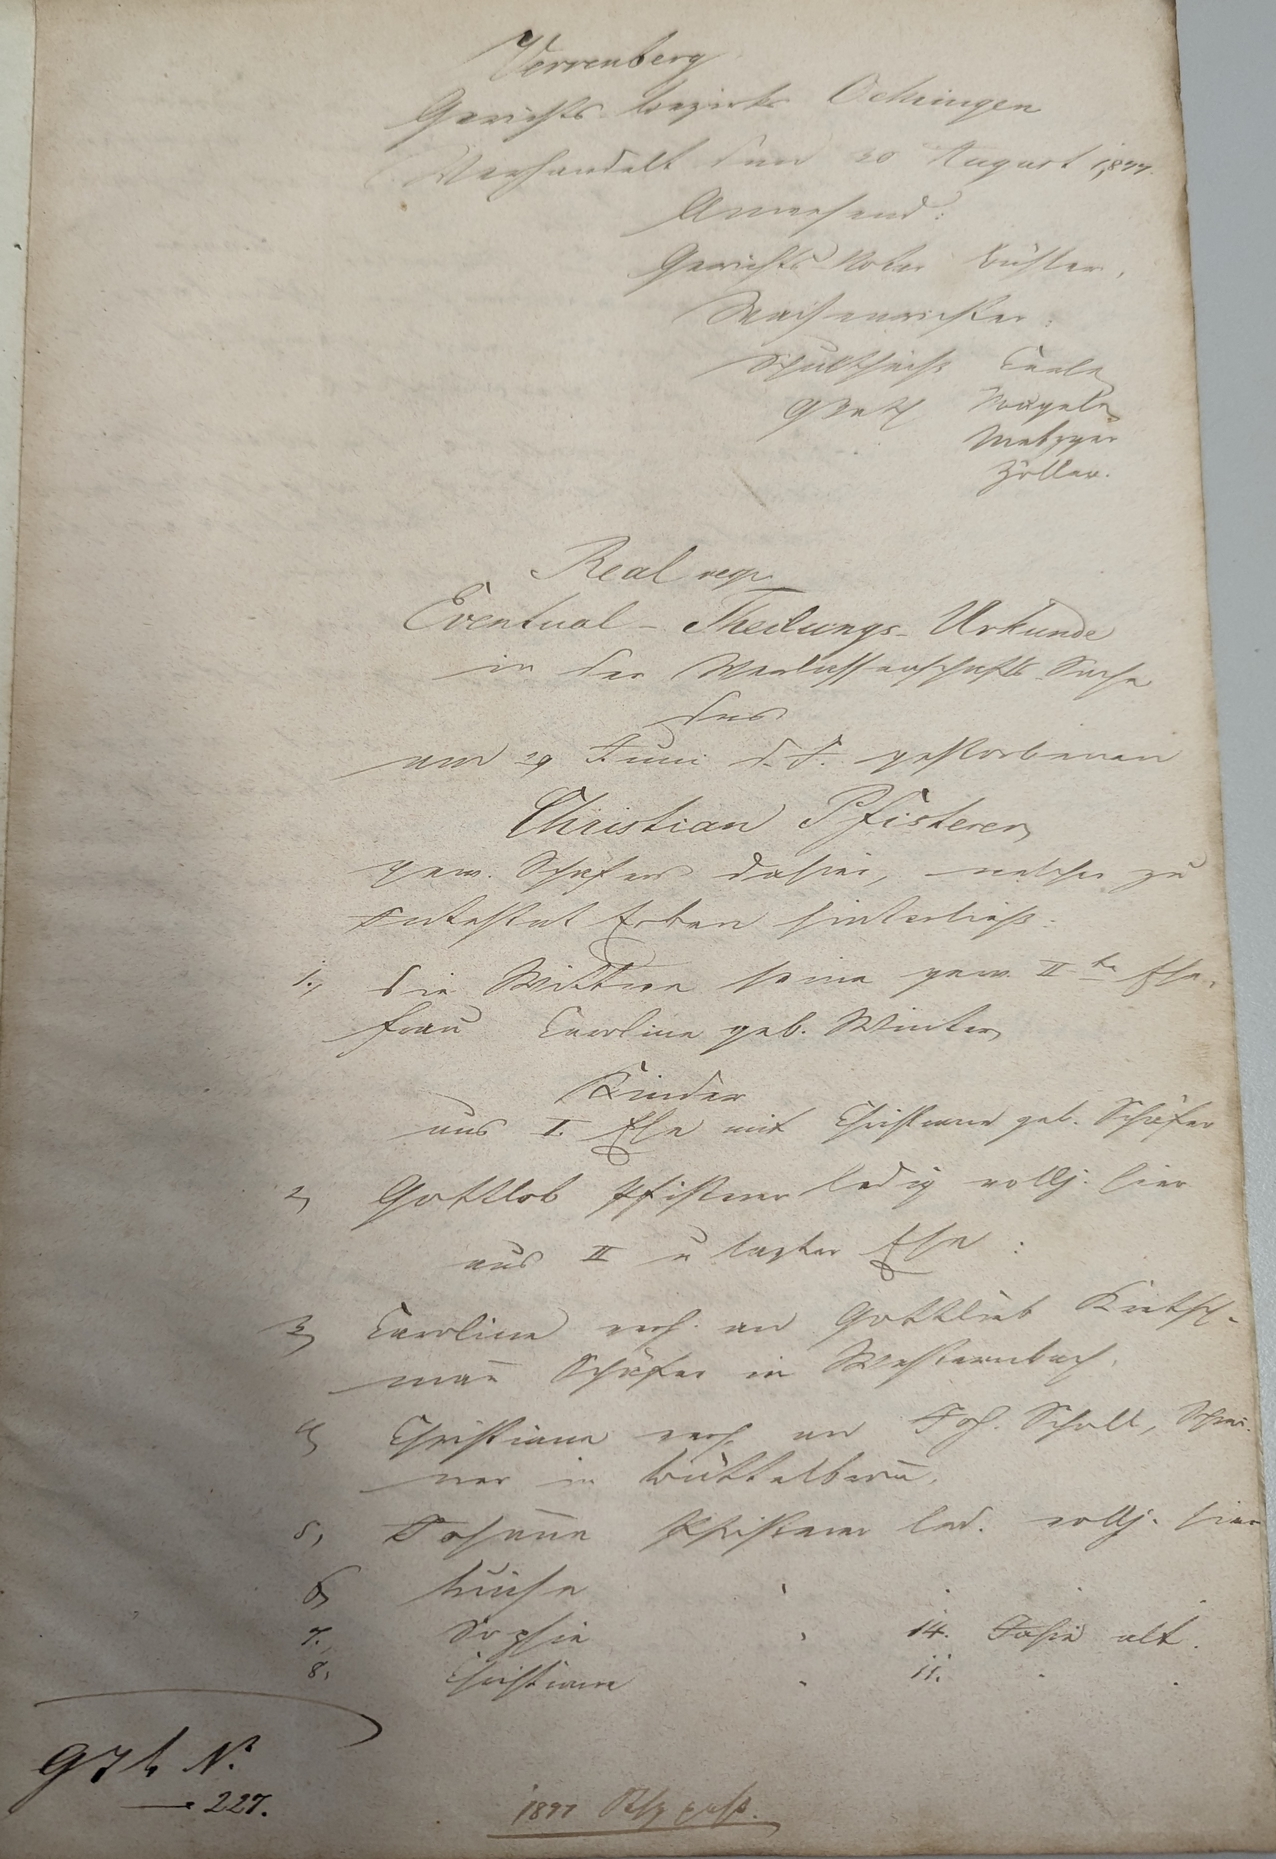 Verrenberg
Gerichts bezirks Oehringen
Verhandelt den 20 August 1877.
Anwesend:
Gerichts Notar
Waisenrichter:
Schultheiß
Metzger
Zoller.
Real resp.
Eventual - Theilungs- Urkunde
in der Verlassenschafts Sache
des
am 29 Juni d. J. gestorbenen
Christian Pfisterer,
gew. Schäfers dahier, welcher zu
Intestat Erben hinterließ:
1., die Wittwe seine gew. II te Ehe,
frau Caroline geb. Winter,
Kinder
aus I. Ehe mit Christiane geb. Schäfer
2, Gottlob Pfisterer ledig vollj. hier
aus II u letzter Ehe :
3, Caroline verh. an Gottlieb Kretsch-
mañ Schäfer in Westernbach.
4, Christiane verh. an Joh. Scholl, Schrei-
ner in
5, Johañe Pfisterer led. vollj. hier
6, Luise " . . .
7., Sophie " 14. Jahre alt.
8, Christiane " 11. " .
N.
227.
1877